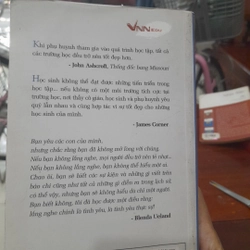 VNN
Khi phụ huynh tham gia vào quá trình học tập, tất cả
các trường học đều trở nên tốt đẹp hơn.
- John Ashcroft, Thống đốc bang Missouri
Học sinh không thể đạt được những tiến triển trong
học tập ... nếu không có một môi trường tích cực tại
trường học, nơi thầy cô giáo, học sinh và phụ huynh yêu
quý lẫn nhau và cùng hợp tác vì sự tốt đẹp cho những
học sinh của mình.
- James Comer
Bạn yêu các con của mình,
nhưng chắc rằng bạn đã không mở lòng với chúng.
Nếu bạn không lắng nghe, mọi người đều trở nên tẻ nhạt...
Nếu bạn không lắng nghe, bạn không thể hiểu một ai.
Chao ôi, bạn có thể biết các sự kiện và những gì viết trên
báo chí cũng như tất cả những gì diễn ra trong lịch sử,
có thể vậy, nhưng bạn sẽ không hiểu dù chỉ một người.
Bạn biết không, tôi đã học được một điều rằng:
lòng nghe chính là tình yêu, là tình yêu thực sự!
- Brenda Ueland